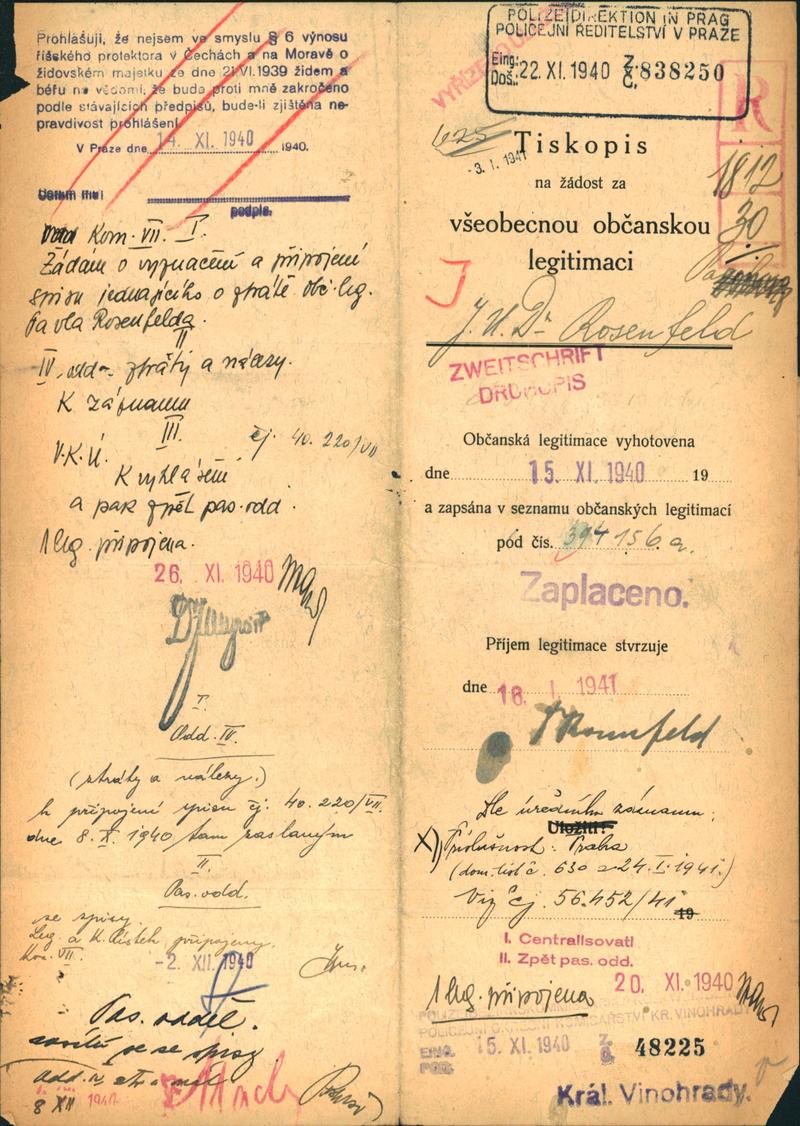 Prohlašuji, že nejsem ve smyslu § 6 výnosu
říšského protektora v Čechách a na Moravě o
židovském majetku ze dne 21.VI.1939 židem a
béřu na vědomí, že bude proti mně zakročeno
podle stávajících předpisů, bude-li zjištěna ne-
pravdivost prohlášení.
V Praze dne 14. XI. 1940 1940.
podpis.
Kom. VII. I.
Žádám o vyznačení a připojení
spisu jednajícího o ztrátě obč. leg.
Pavla Rosenfelda.
II
IV. odd. ztráty a nálezy.
K záznamu
III.
V.K.Ú. čj. 40.220/VII
K vyhlášení
a pak zpět pas. odd.
1 leg. připojena.
26. XI. 1940
I.
Odd. IV.
(ztráty a nálezy.)
k připojení spisu čj. 40.220/VII.
dne 8.X.1940 tam zaslaným
II.
Pas. odd.
se spisy.
Leg. a připojeny.
Kom. VII.
-2. XII. 1940
Pas. odděl.
se se spisy
odd. IV
8 XII 1940
POLIZEIDIREKTION IN PRAG
POLICEJNÍ ŘEDITELSTVÍ V PRAZE
Eing.: Doš.: 22. XI. 1940 Z. Č. 838250
R
625
-3. I. 1941
1812
30
Tiskopis
na žádost za
všeobecnou občanskou
legitimaci
J.U.Dr Rosenfeld
ZWEITSCHRIFT
DRUHOPIS
Občanská legitimace vyhotovena
dne 15. XI. 1940 19
a zapsána v seznamu občanských legitimací
pod čís. 394 156 a.
Zaplaceno.
Příjem legitimace stvrzuje
dne 16. I. 1941
Dle úředního záznamu:
Uložiti:
X) Příslušnost: Praha
(dom. list č. 630 z 24.I.1941.)
Viz čj. 56.452/41
19
I. Centralisovati
II. Zpět pas. odd.
20. XI. 1940
1 leg. připojena
KR. VINOHRADY
EING. 15. XI. 1940 Z. 48225
Král. Vinohrady.